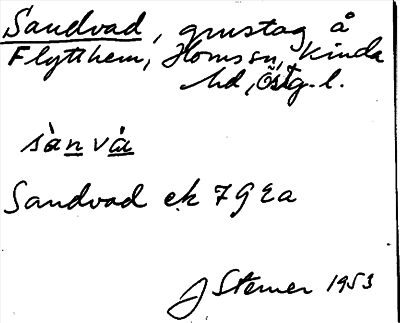 Sandvad, grustag å
Flytthem, Horns sn, Kinda
hd, Östg. l.
sànvà
Sandvad ek 7G Ea
J Sterner 1953